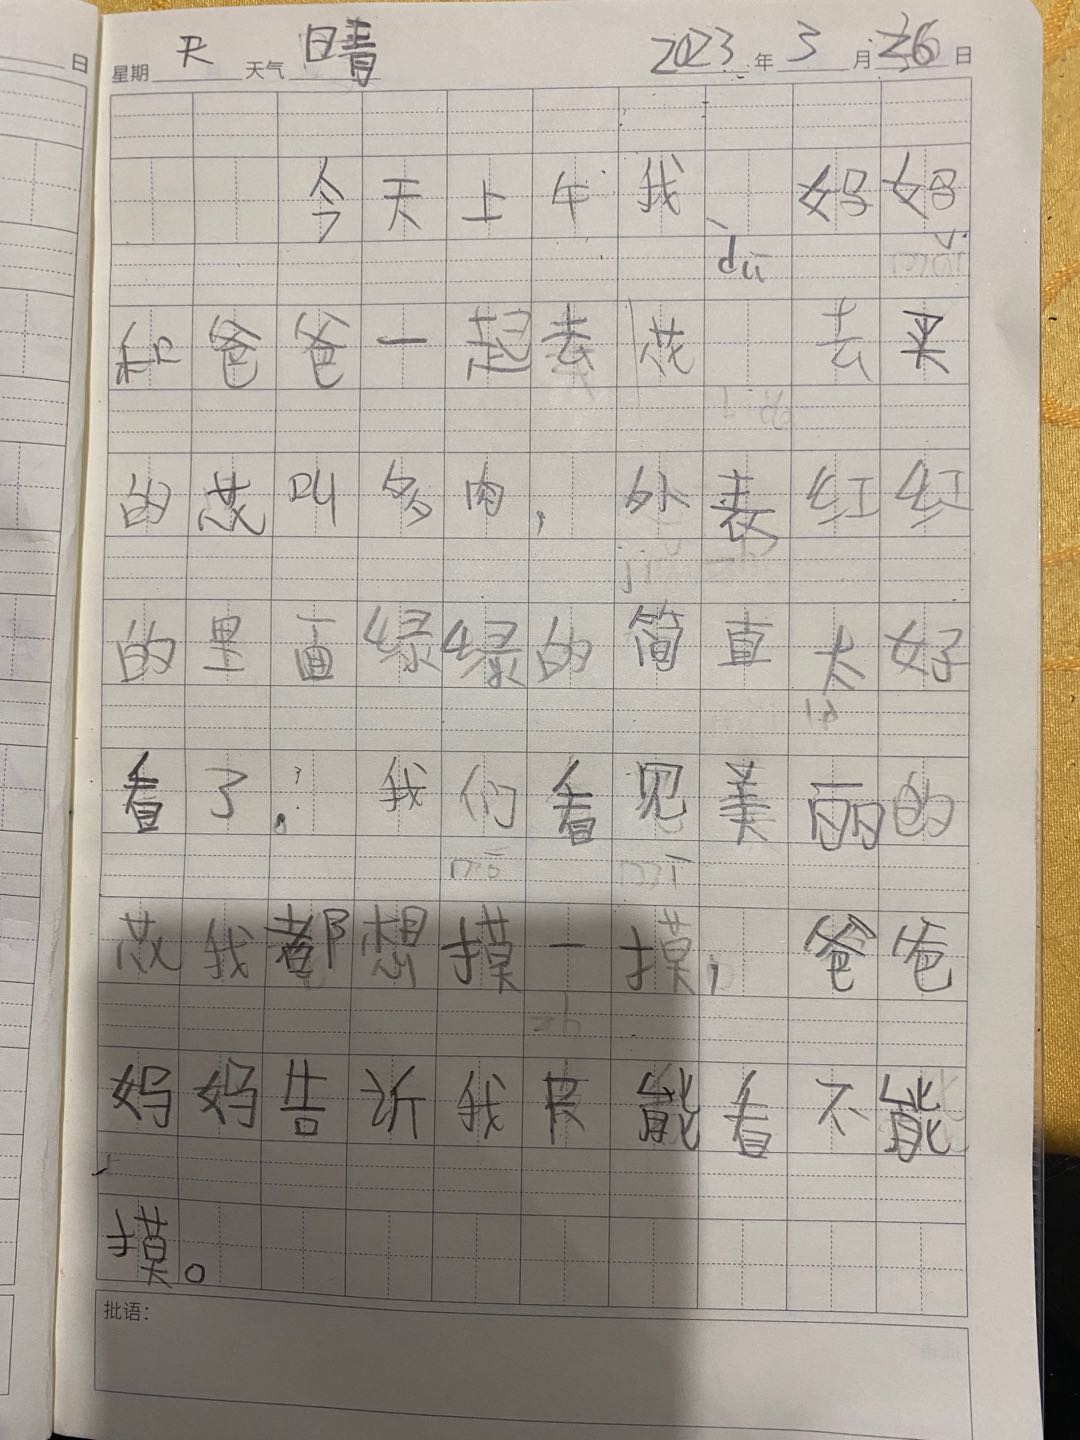 日
星期 天 天气 晴 2023 年 3 月 26 日
今天上午我、妈妈
dū
和爸爸一起去花 去买
的花叫多肉，外表红红
的里面绿绿的简直太好
看了！我们看见美丽的
花我都想摸一摸，爸爸
妈妈告诉我只能看不能
摸。
批语：